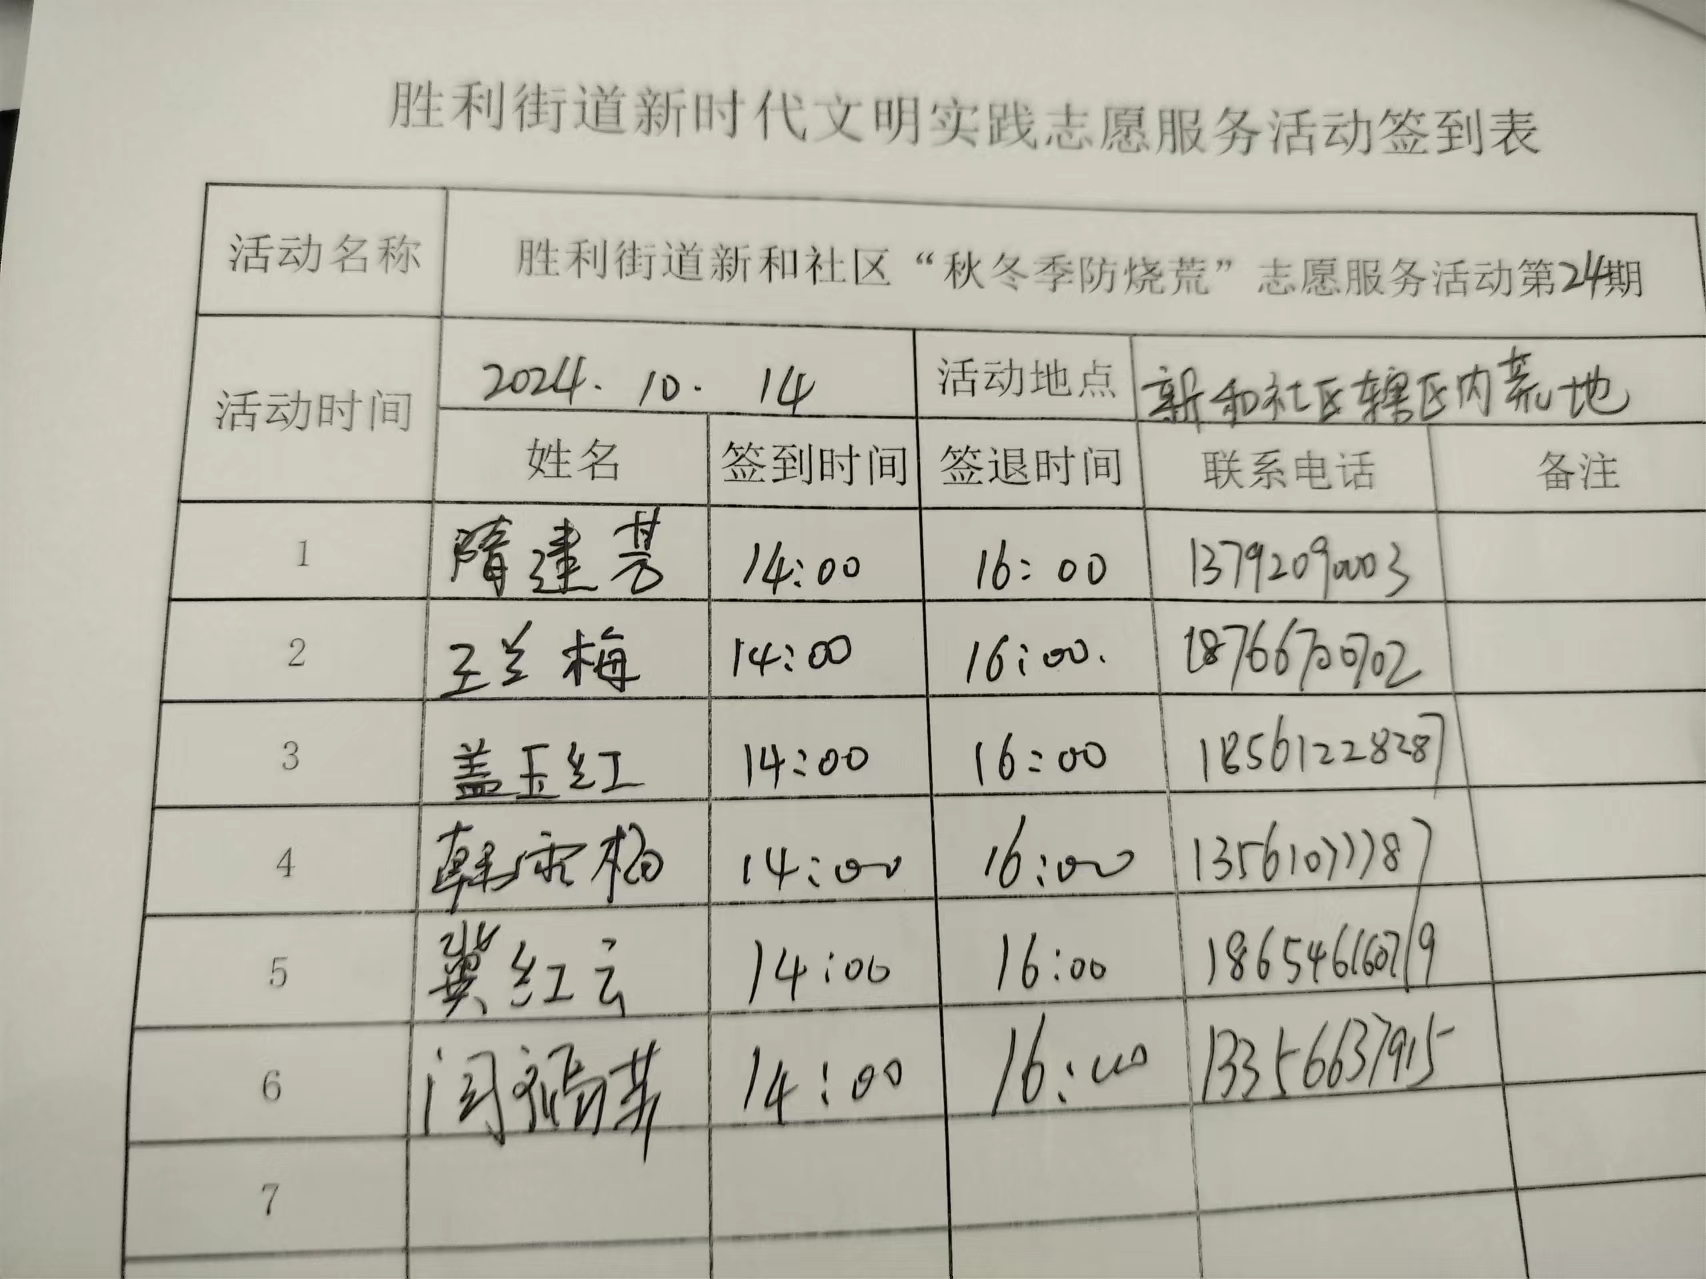 胜利街道新时代文明实践志愿服务活动签到表
活动名称 胜利街道新和社区“秋冬季防烧荒”志愿服务活动第24期
活动时间 2024. 10. 14 活动地点 新和社区辖区内荒地
姓名 签到时间 签退时间 联系电话 备注
1 隋建芳 14:00 16:00 13792090003
2 王兰梅 14:00 16:00. 18766700702
3 盖玉红 14:00 16:00 18561228287
4 韩雪梅 14:00 16:00 13561077787
5 冀红云 14:00 16:00
6 14:00 16:00 13356637915
7